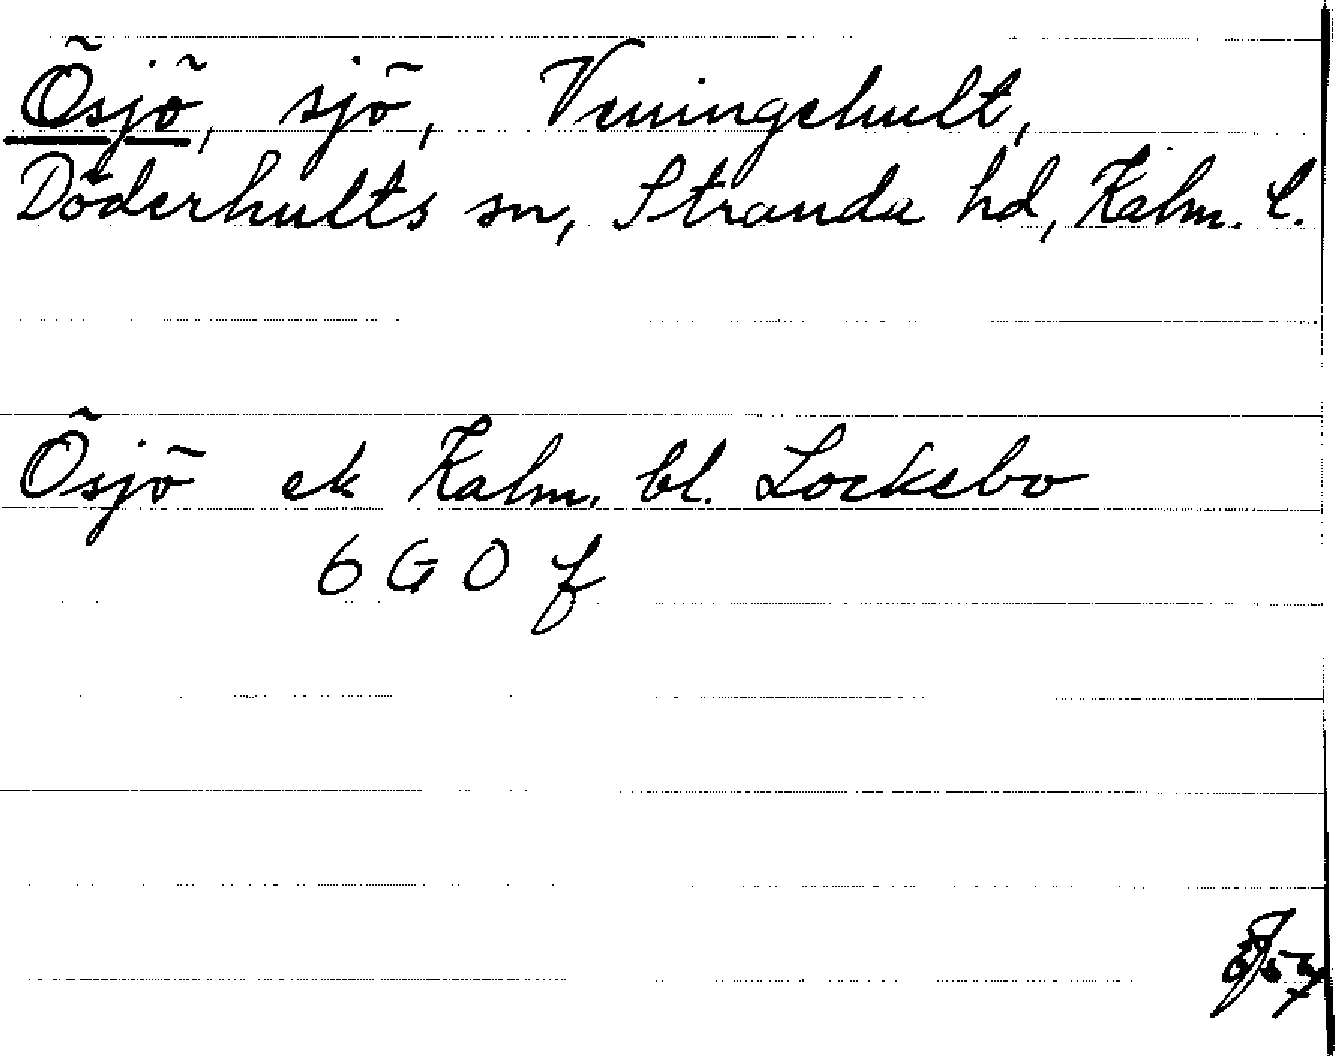 Ösjö, sjö, Veningehult,
Döderhults sn, Stranda hd, Kalm. l.
Ösjö ek Kalm. bl. Lockebo
6 G 0 f